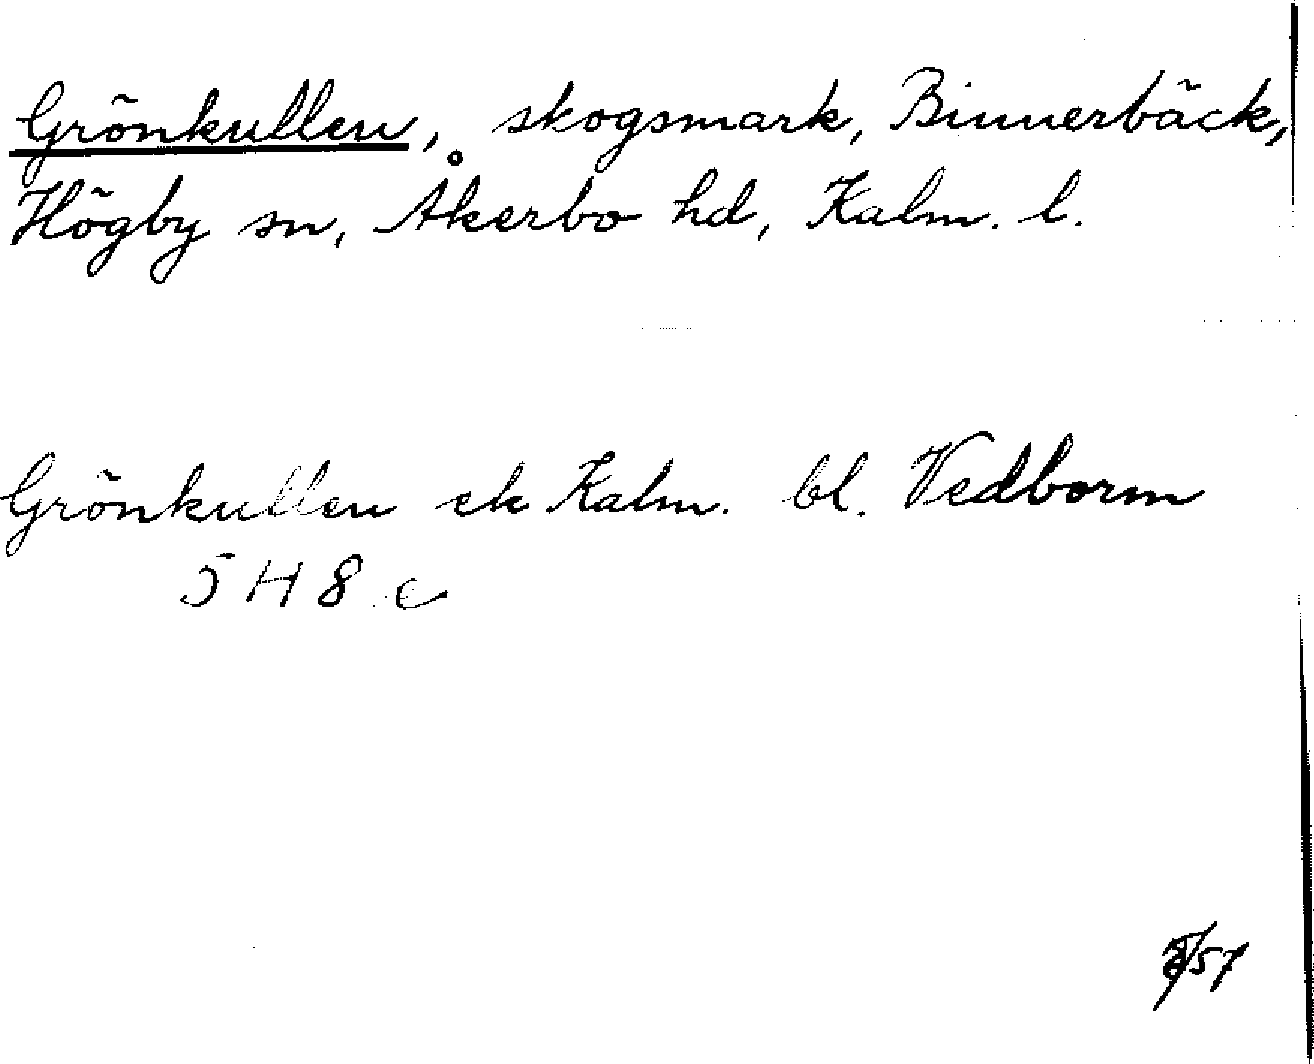 Grönkullen, skogsmark, Binnerbäck,
Högby sn, Åkerbo hd, Kalm. l.
Grönkullen ek Kalm. bl. Vedborm
5 H 8 c